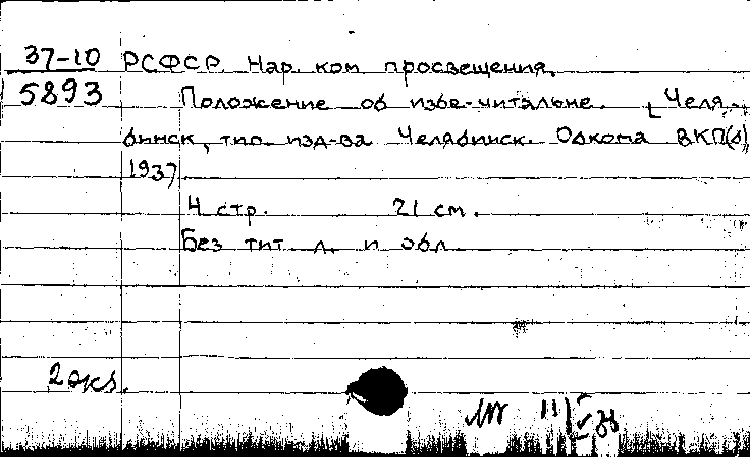 37-10 РСФСР. Нар. ком. просвещения.
5893 Положение об избе-читальне. [Челя-
бинск, тип. изд-ва Челябинск. Обкома ВКП(б)
1937.
4 стр. 21 см.
Без тит. л. и обл.
2 экз.